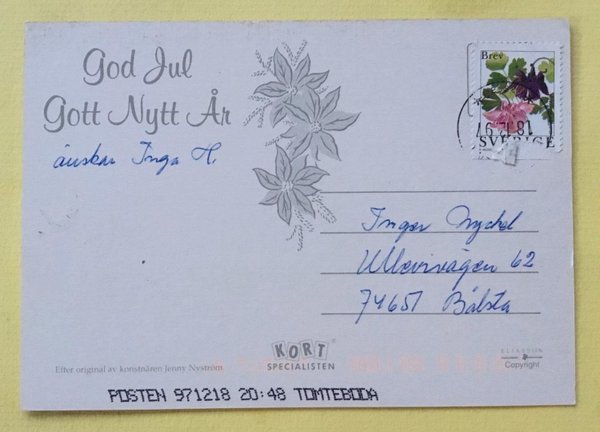 God Jul
Gott Nytt År
önskar Inga H.
Brev
18.12.97
SVERIGE
Inger Nychel
Ullevivägen 62
74651 Bålsta
KORT
SPECIALISTEN
Efter original av konstnären Jenny Nyström
Copyright
POSTEN 971218 20:48 TOMTEBODA